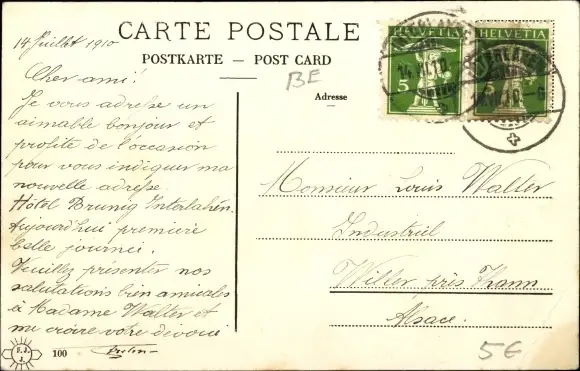 CARTE POSTALE
POSTKARTE — POST CARD
Adresse
BE
HELVETIA
5
HELVETIA
INTERLAKEN
14 Juillet 1910
Cher ami!
Je vous adresse un
aimable bonjour et
profite de l'occasion
pour vous indiquer ma
nouvelle adresse.
Hôtel Brunig Interlaken.
Aujourd'hui première
belle journée.
Veuillez présenter nos
salutations bien amicales
à Madame Walter et
me croire votre dévoué
Monsieur Louis Walter
Industriel
Willer près Thann
Alsace.
100
5€